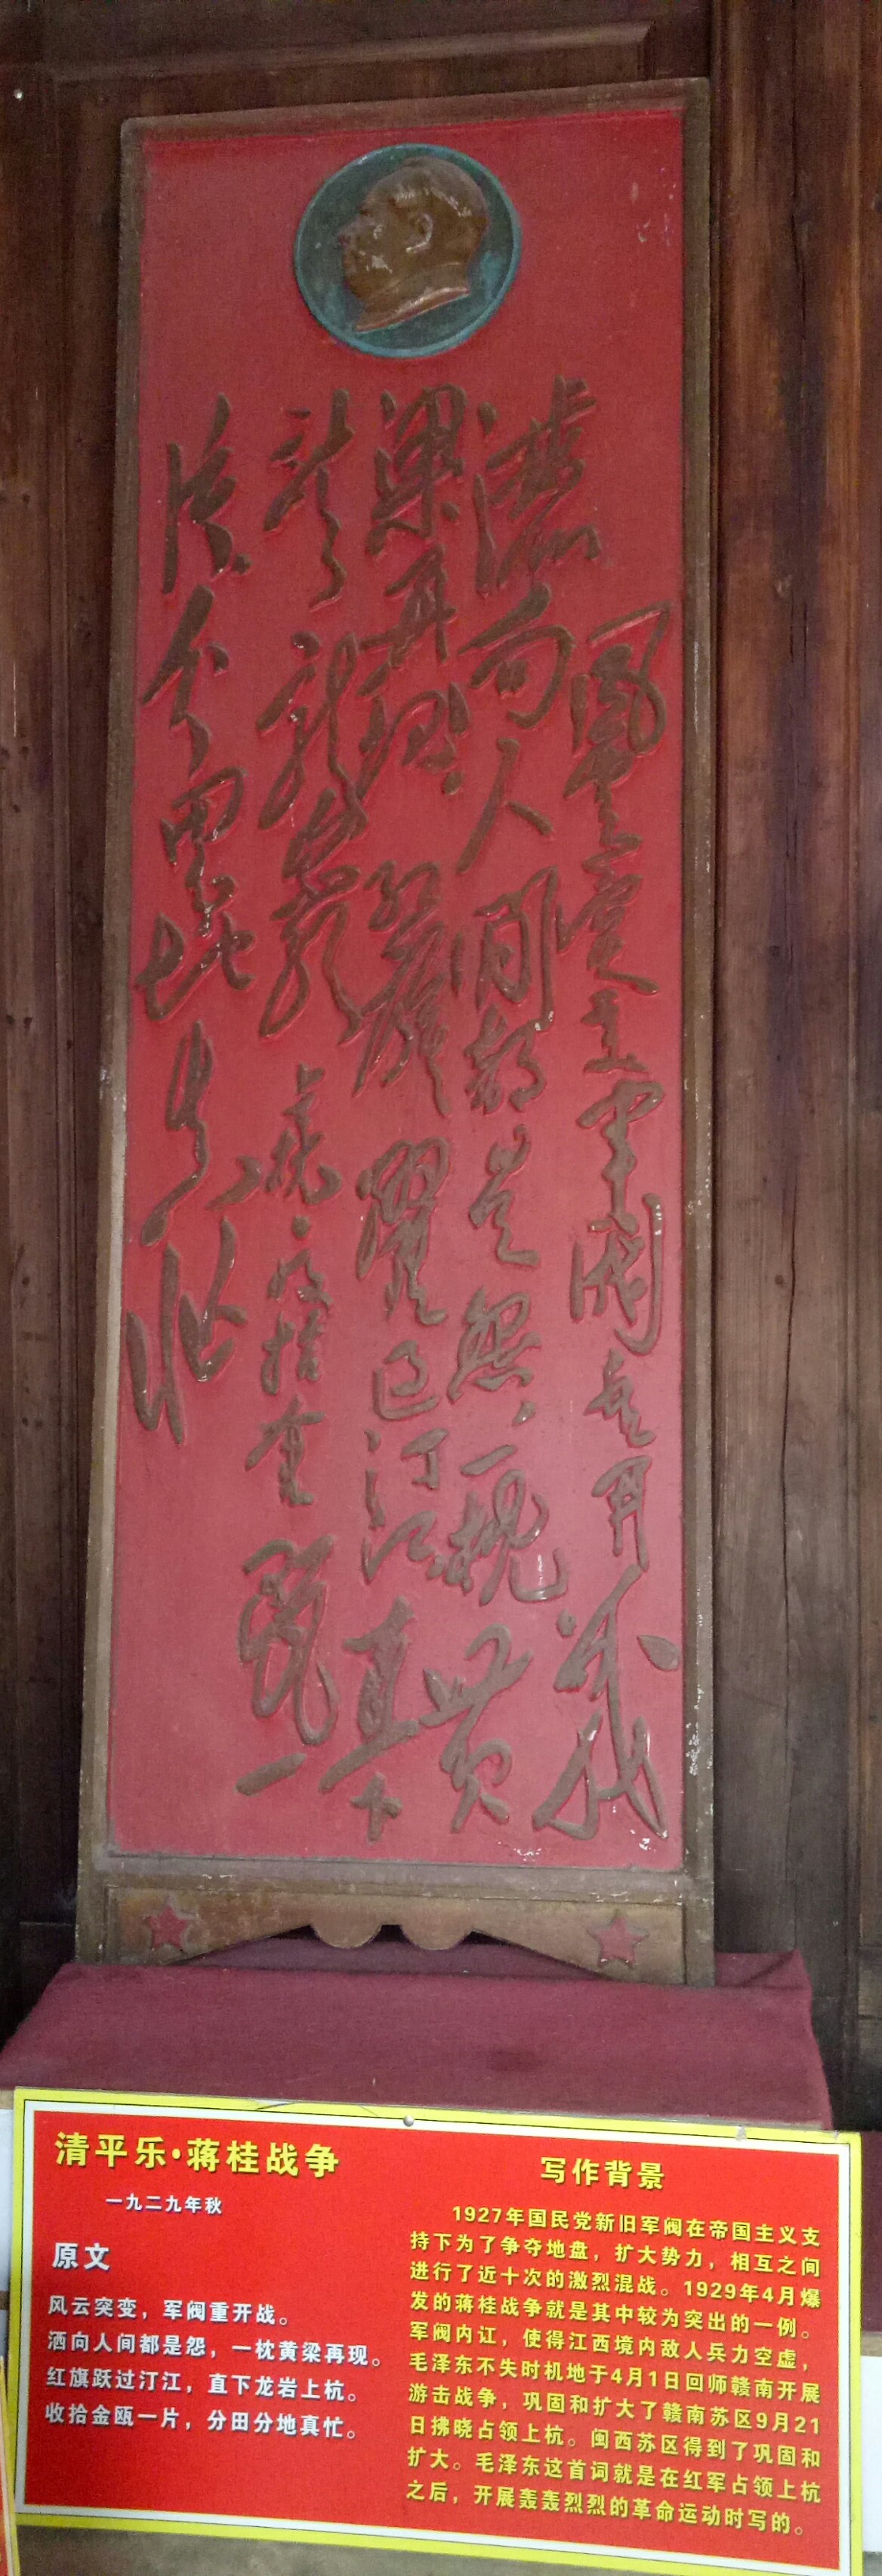 風雲突变军阀重开戰
灑向人间都是怨，一枕黄
梁再現。红旗躍过汀江直下
龍巖上杭收拾金甌一
片分田分地真忙
清平乐·蒋桂战争
一九二九年秋
原文
风云突变，军阀重开战。
洒向人间都是怨，一枕黄梁再现。
红旗跃过汀江，直下龙岩上杭。
收拾金瓯一片，分田分地真忙。
写作背景
1927年国民党新旧军阀在帝国主义支
持下为了争夺地盘，扩大势力，相互之间
进行了近十次的激烈混战。1929年4月爆
发的蒋桂战争就是其中较为突出的一例。
军阀内讧，使得江西境内敌人兵力空虚，
毛泽东不失时机地于4月1日回师赣南开展
游击战争，巩固和扩大了赣南苏区9月21
日拂晓占领上杭。闽西苏区得到了巩固和
扩大。毛泽东这首词就是在红军占领上杭
之后，开展轰轰烈烈的革命运动时写的。